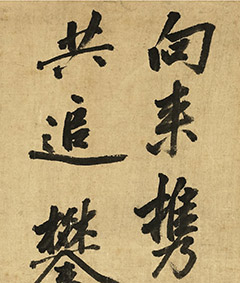 向来携
共追攀